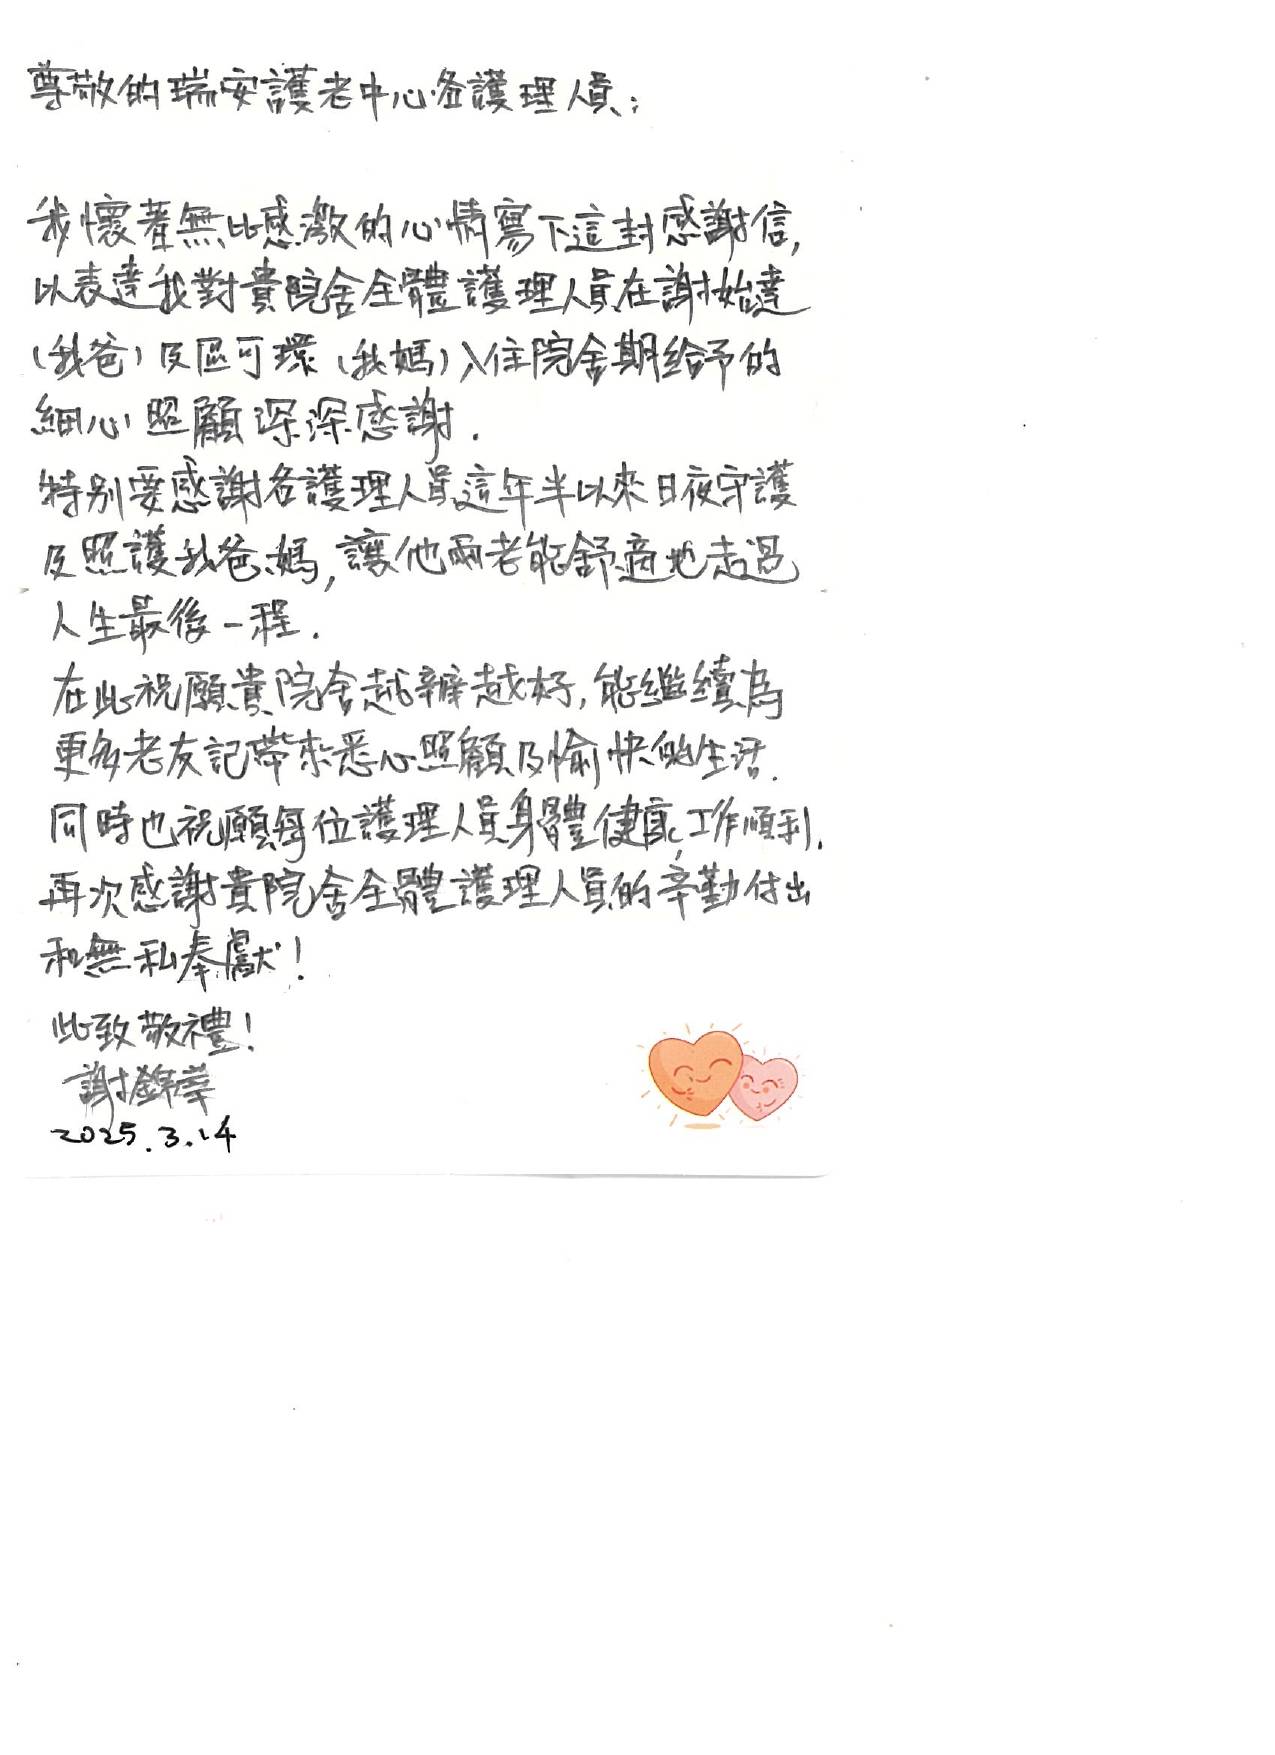 尊敬的瑞安護老中心各護理人員：
我懷著無比感激的心情寫下這封感謝信，
以表達我對貴院舍全體護理人員在謝始達
（我爸）及區可環（我媽）入住院舍期給予的
細心照顧深深感謝．
特別要感謝各護理人員這年半以來日夜守護
及照護我爸媽，讓他兩老能舒適地走過
人生最後一程．
在此祝願貴院舍越辦越好，能繼續為
更多老友記帶來悉心照顧及愉快的生活．
同時也祝願每位護理人員身體健康，工作順利．
再次感謝貴院舍全體護理人員的辛勤付出
和無私奉獻！
此致敬禮！
謝錦
2025.3.14